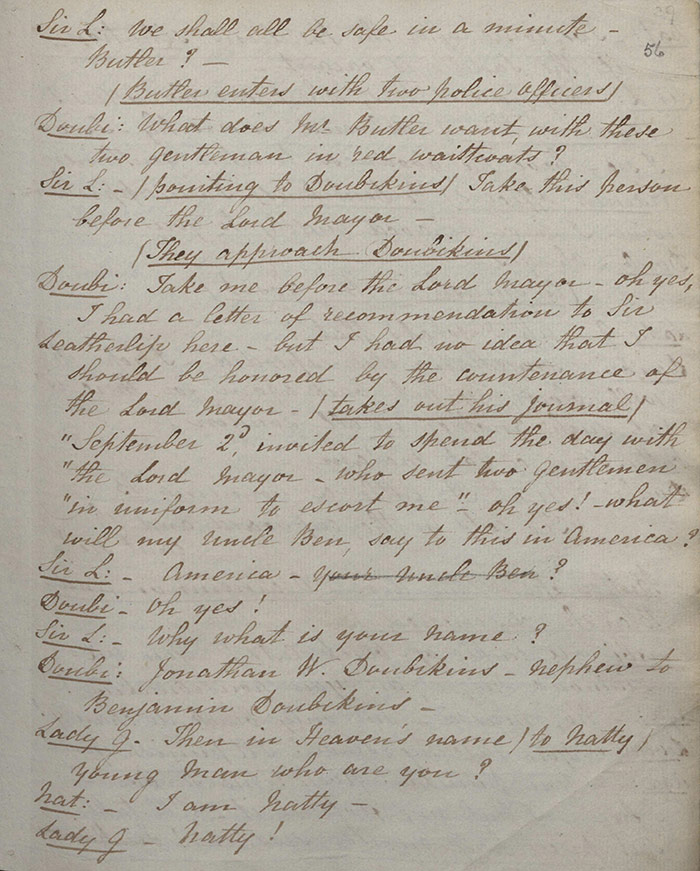 Sir L: We shall all be safe in a minute –
56
Butler? –
(Butler enters with two police officers)
Doubi: What does Mr Butler want, with these
two gentleman in red waistcoats?
Sir L: – (pointing to Doubikins) Take this person
before the Lord Mayor –
(They approach Doubikins)
Doubi: Take me before the Lord Mayor – oh yes,
I had a letter of recommendation to Sir
Leatherlip here – but I had no idea that I
should be honored by the countenance of
the Lord Mayor – (takes out his Journal)
"September 2d, invited to spend the day with
"the Lord Mayor – who sent two gentlemen
"in uniform to escort me" – oh yes! – what
will my Uncle Ben, say to this in America?
Sir L: – America – your Uncle Ben?
Doubi – Oh yes!
Sir L: – Why what is your name?
Doubi: Jonathan W. Doubikins – nephew to
Benjamin Doubikins –
Lady G – Then in Heaven's name (to Natty)
young man who are you?
Nat: – I am Natty –
Lady G – Natty!